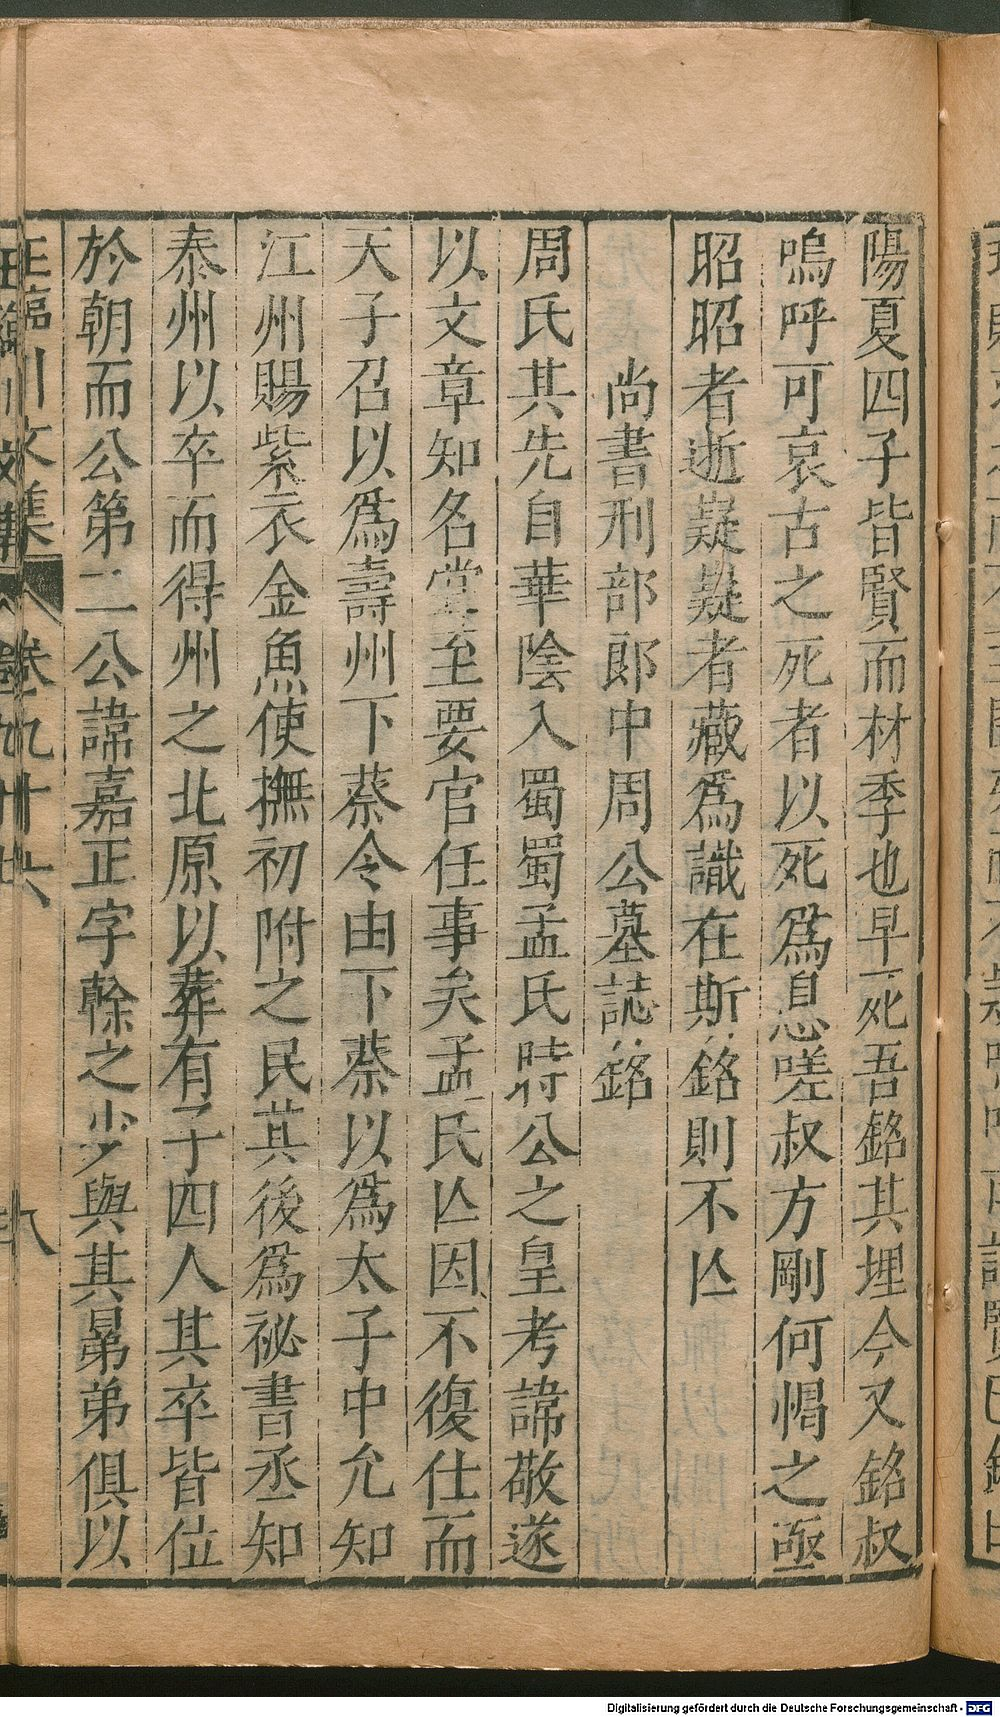 陽夏四子皆賢而材季也早死吾銘其埋今又銘叔
嗚呼可哀古之死者以死爲息嗟叔方剛何惕之亟
昭昭者逝嶷嶷者藏爲識在斯銘則不亾
尚書刑部郎中周公墓誌銘
周氏其先自華陰入蜀蜀孟氏時公之皇考諱敬遂
以文章知名堂至要官任事矣孟氏亾因不復仕而
天子召以爲壽州下蔡令由下蔡以爲太子中允知
江州賜紫衣金魚使撫初附之民其後爲祕書丞知
泰州以卒而得州之北原以葬有子四人其卒皆位
於朝而公第二公諱嘉正字榦之少與其晜弟俱以
王臨川文集 卷九十六 八
Digitalisierung gefördert durch die Deutsche Forschungsgemeinschaft - DFG